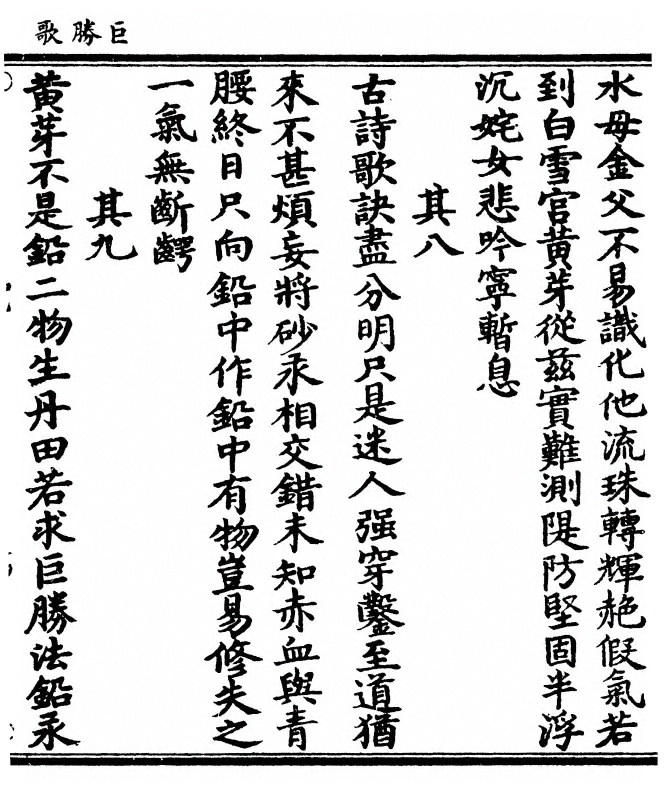 巨勝歌
水母金父不易識化他流珠轉輝赩假氣若
到白雪宮黃芽從茲實難測隄防堅固半浮
沉姹女悲吟寧暫息
其八
古詩歌訣盡分明只是迷人强穿鑿至道猶
來不甚煩妄將砂汞相交錯未知赤血與青
腰終日只向鉛中作鉛中有物豈易修失之
一氣無斷齶
其九
黃芽不是鉛二物生丹田若求巨勝法鉛汞